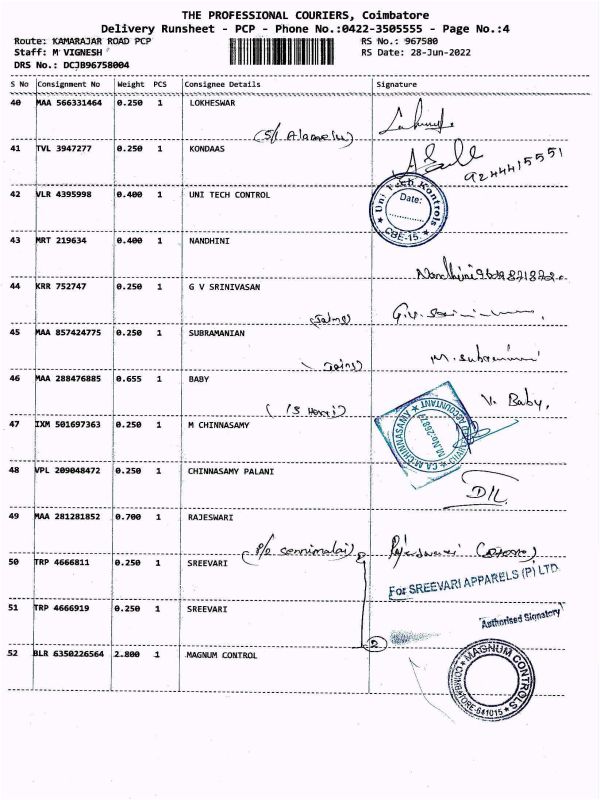 THE PROFESSIONAL COURIERS, Coimbatore
Delivery Runsheet - PCP - Phone No.:0422-3505555 - Page No.:4
Route: KAMARAJAR ROAD PCP RS No.: 967580
Staff: M VIGNESH RS Date: 28-Jun-2022
DRS No.: DCJB96758004
S No Consignment No Weight PCS Consignee Details Signature
40 MAA 566331464 0.250 1 LOKHESWAR
41 TVL 3947277 0.250 1 KONDAAS
9244415551
42 VLR 4395998 0.400 1 UNI TECH CONTROL
Uni Tech Kontrols Date: CBE-15.
43 MRT 219634 0.400 1 NANDHINI
Nandhini
44 KRR 752747 0.250 1 G V SRINIVASAN
45 MAA 857424775 0.250 1 SUBRAMANIAN
46 MAA 288476885 0.655 1 BABY
V. Baby,
47 IXM 501697363 0.250 1 M CHINNASAMY
CA M CHINNASAMY CHARTERED ACCOUNTANT
48 VPL 209048472 0.250 1 CHINNASAMY PALANI
49 MAA 281281852 0.700 1 RAJESWARI
50 TRP 4666811 0.250 1 SREEVARI
For SREEVARI APPARELS (P) LTD
51 TRP 4666919 0.250 1 SREEVARI
Authorised Signatory
2
52 BLR 6350226564 2.800 1 MAGNUM CONTROL
MAGNUM CONTROLS COIMBATORE-641015